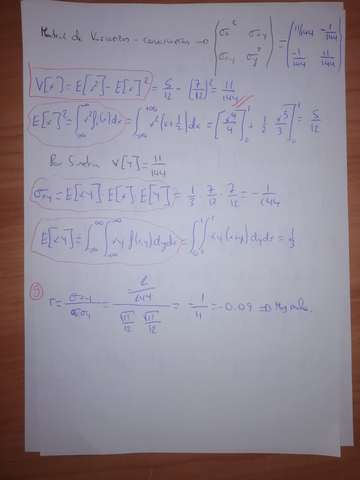 Matriz de Varianzas - covarianzas → (σx² σxy / σxy σy²) = (11/144 -1/144 / -1/144 11/144)
V[x] = E[x²] - E[x]² = 5/12 - (7/12)² = 11/144
E[x]² = ∫_∞^∞ x² f(x) dx = ∫_∞^+∞ x² (x + 1/2) dx = [x⁴/4]₀¹ + 1/2 [x³/3]₀¹ = 5/12
Por Simetria V[Y] = 11/144
σxy = E[xY] E[x] E[Y] = 1/3 · 7/12 · 7/12 = -1/144
E[xY] = ∫_∞^∞ ∫_∞^∞ xy f(xy) dy dx = ∫₀¹ ∫₀¹ xy (x+y) dy dx = 1/3
g) r = σxy / σxσy = (1/144) / (√11/12 √11/12) = -1/11 = -0.09 → Muy mala.